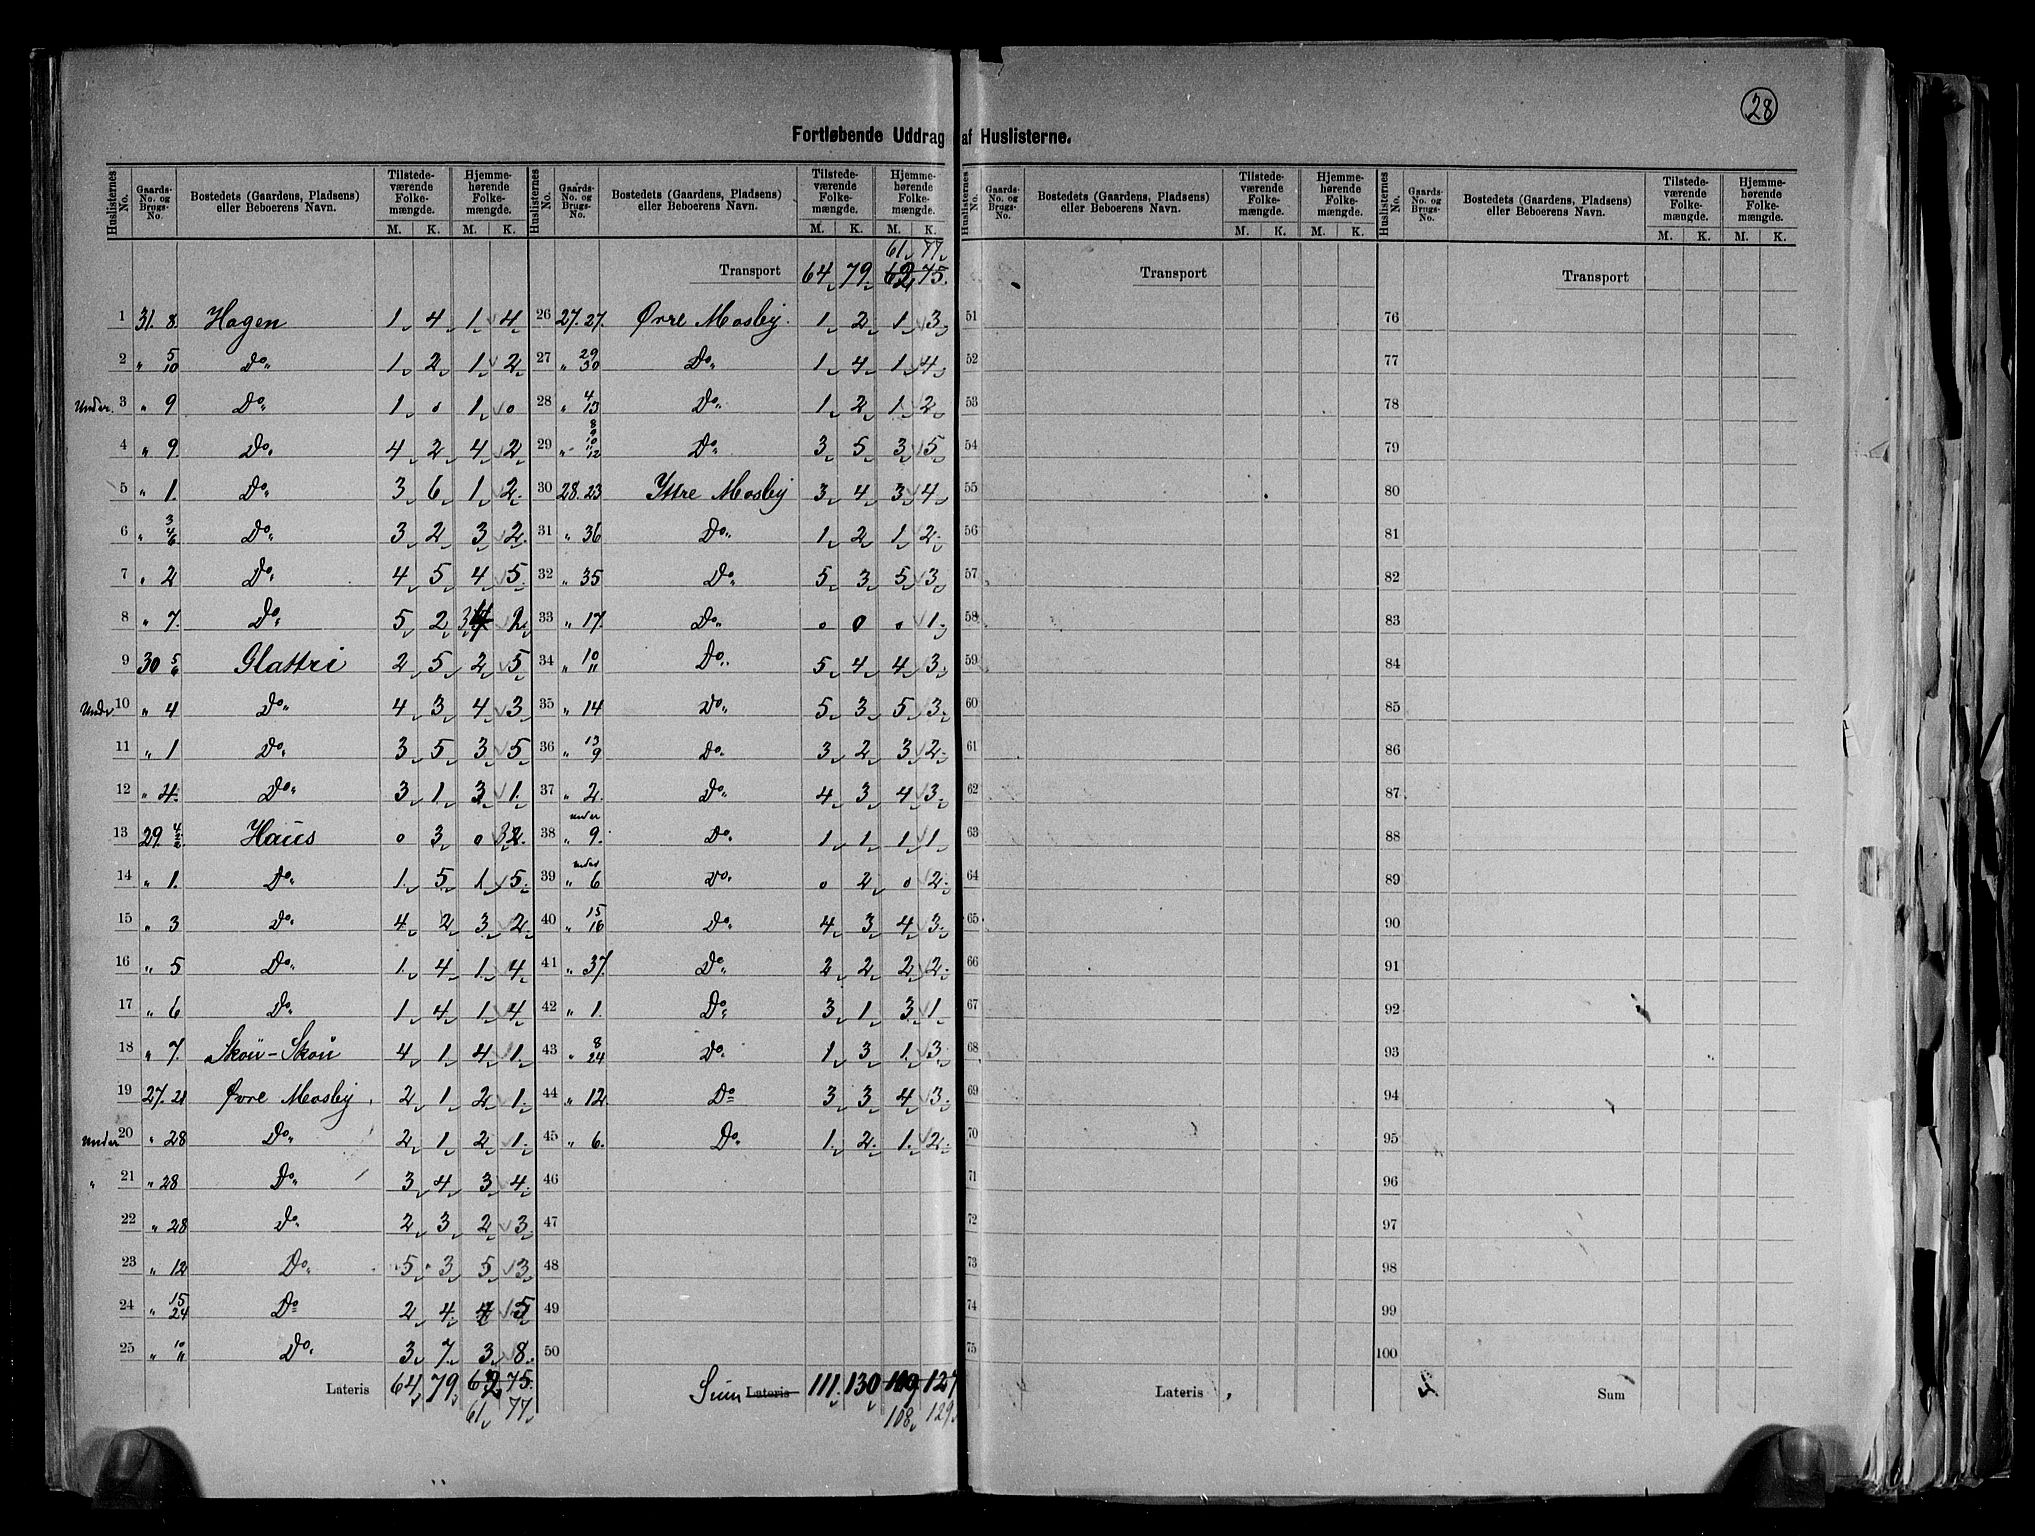 28
Fortløbende Uddrag af Huslisterne.
Huslisternes No. Gaards-No. og Brugs-No. Bostedets (Gaardens, Pladsens) eller Beboerens Navn. Tilstedeværende Folkemængde. Hjemmehørende Folkemængde.
M. K. M. K.
1 31. 8. Hagen 1 4 1 4
2 " 5 10 Do 1 2 1 2
Under. 3 " 9 Do 1 0 1 0
4 " 9. Do 4 2 4 2
5 " 1. Do 3 6 1 2
6 " 3 4 6 Do 3 2 3 2
7 " 2 Do 4 5 4 5
8 " 7. Do 5 2 3 2
9 30 5 6 Glattri 2 5 2 5
Under 10 " 4 Do 4 3 4 3
11 " 1 Do 3 5 3 5
12 " 4. Do 3 1 3 1
13 29. Haus 0 3 0 3 2
14 " 1. Do 1 5 1 5
15 " 3 Do 4 2 3 2
16 " 5 Do 1 4 1 4
17 " 6 Do 1 4 1 4
18 " 7. Skou-Skou 4 1 4 1
19 27. 21 Øvre Mosby. 2 1 2 1
Under 20 " 28 Do 2 1 2 1
" 21 " 28 Do 3 4 3 4
22 " 28 Do 2 3 2 3
23 " 12 Do 5 3 5 3
24 " 15 24 Do 2 4 5
25 " 10 11 Do 3 7 3 8
Lateris 64 79 62 75
61 77
Huslisternes No. Gaards-No. og Brugs-No. Bostedets (Gaardens, Pladsens) eller Beboerens Navn. Tilstedeværende Folkemængde. Hjemmehørende Folkemængde.
M. K. M. K.
61 77
Transport 64 79 62 75
26 27. 27. Øvre Mosby. 1 2 1 3
27 " 29 30 Do 1 4 1 4
28 " 4 13 Do 1 2 1 2
29 " 8 9 10 11 12 Do 3 5 3 5
30 28. 23 Yttre Mosby 3 4 3 4
31 " 36 Do 1 2 1 2
32 " 35 Do 5 3 5 3
33 " 17. Do 0 0 0 1
34 " 10 11 Do 5 4 4 3
35 " 14 Do 5 3 5 3
36 " 13 9 Do 3 2 3 2
37 " 2. Do 4 3 4 3
38 under " 9. Do 1 1 1 1
39 under " 6 Do 0 2 0 2
40 " 15 16 Do 4 3 4 3
41 " 37. Do 2 2 2 2
42 " 1. Do 3 1 3 1
43 " 8 24 Do 1 3 1 3
44 " 12. Do 3 3 4 3
45 " 6. Do 1 2 1 2
46
47
48
49
50
Sum Lateris 111 130 109 127
108 129
Huslisternes No. Gaards-No. og Brugs-No. Bostedets (Gaardens, Pladsens) eller Beboerens Navn. Tilstedeværende Folkemængde. Hjemmehørende Folkemængde.
M. K. M. K.
Transport
51
52
53
54
55
56
57
58
59
60
61
62
63
64
65
66
67
68
69
70
71
72
73
74
75
Lateris
Huslisternes No. Gaards-No. og Brugs-No. Bostedets (Gaardens, Pladsens) eller Beboerens Navn. Tilstedeværende Folkemængde. Hjemmehørende Folkemængde.
M. K. M. K.
Transport
76
77
78
79
80
81
82
83
84
85
86
87
88
89
90
91
92
93
94
95
96
97
98
99
100
Sum